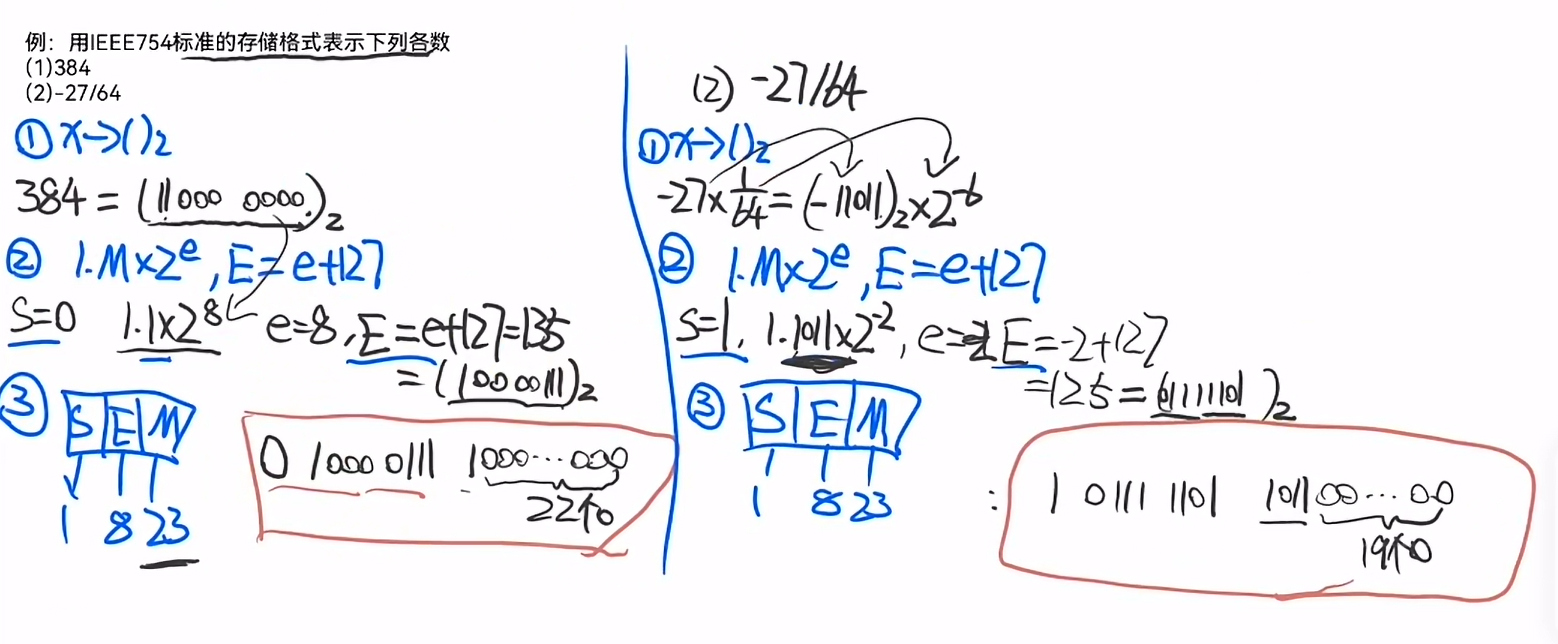 例：用IEEE754标准的存储格式表示下列各数
(1)384
(2)-27/64
① x→()₂
384 = (11000 0000.)₂
② 1.M×2^e , E=e+127
S=0 1.1×2^8 e=8, E=e+127=135
=(1000 0111)₂
③ S E M
1 8 23
0 1000 0111 1000···000
22个0
(2) -27/64
① x→()₂
-27×1/64=(-11011.)₂×2^-6
② 1.M×2^e , E=e+127
S=1, 1.1011×2^-2, e= E=-2+127
=125=(01111101)₂
③ S E M
1 8 23
: 1 0111 1101 101100···00
19个0